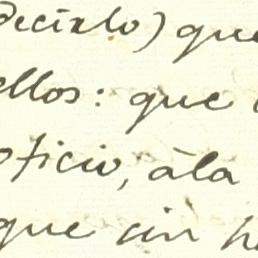 decirlo) que
ellos: que
oficio, àla
que sin